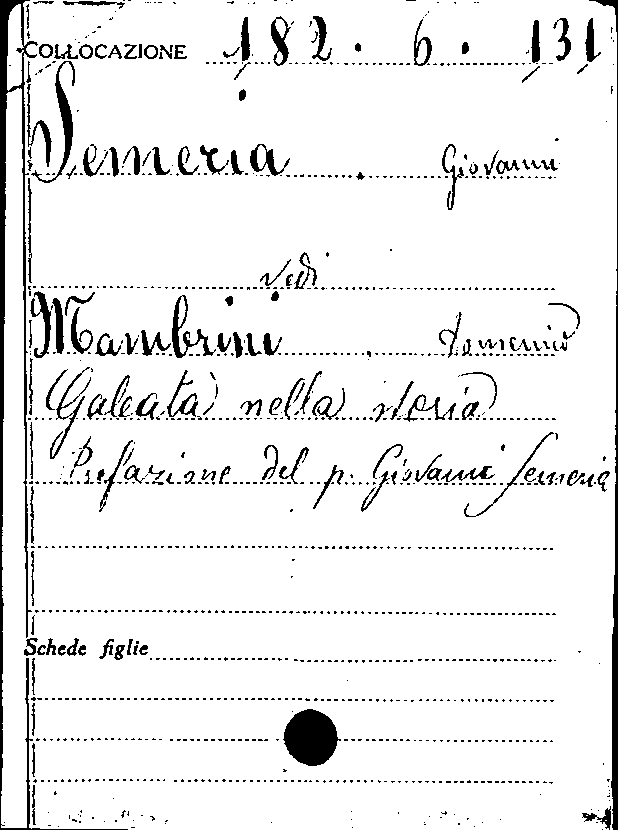 COLLOCAZIONE 182. 6. 131
Semeria. Giovanni
Vedi
Mambrini. Domenico
Galeata nella storia
Prefazione del p. Giovanni Semeria
Schede figlie